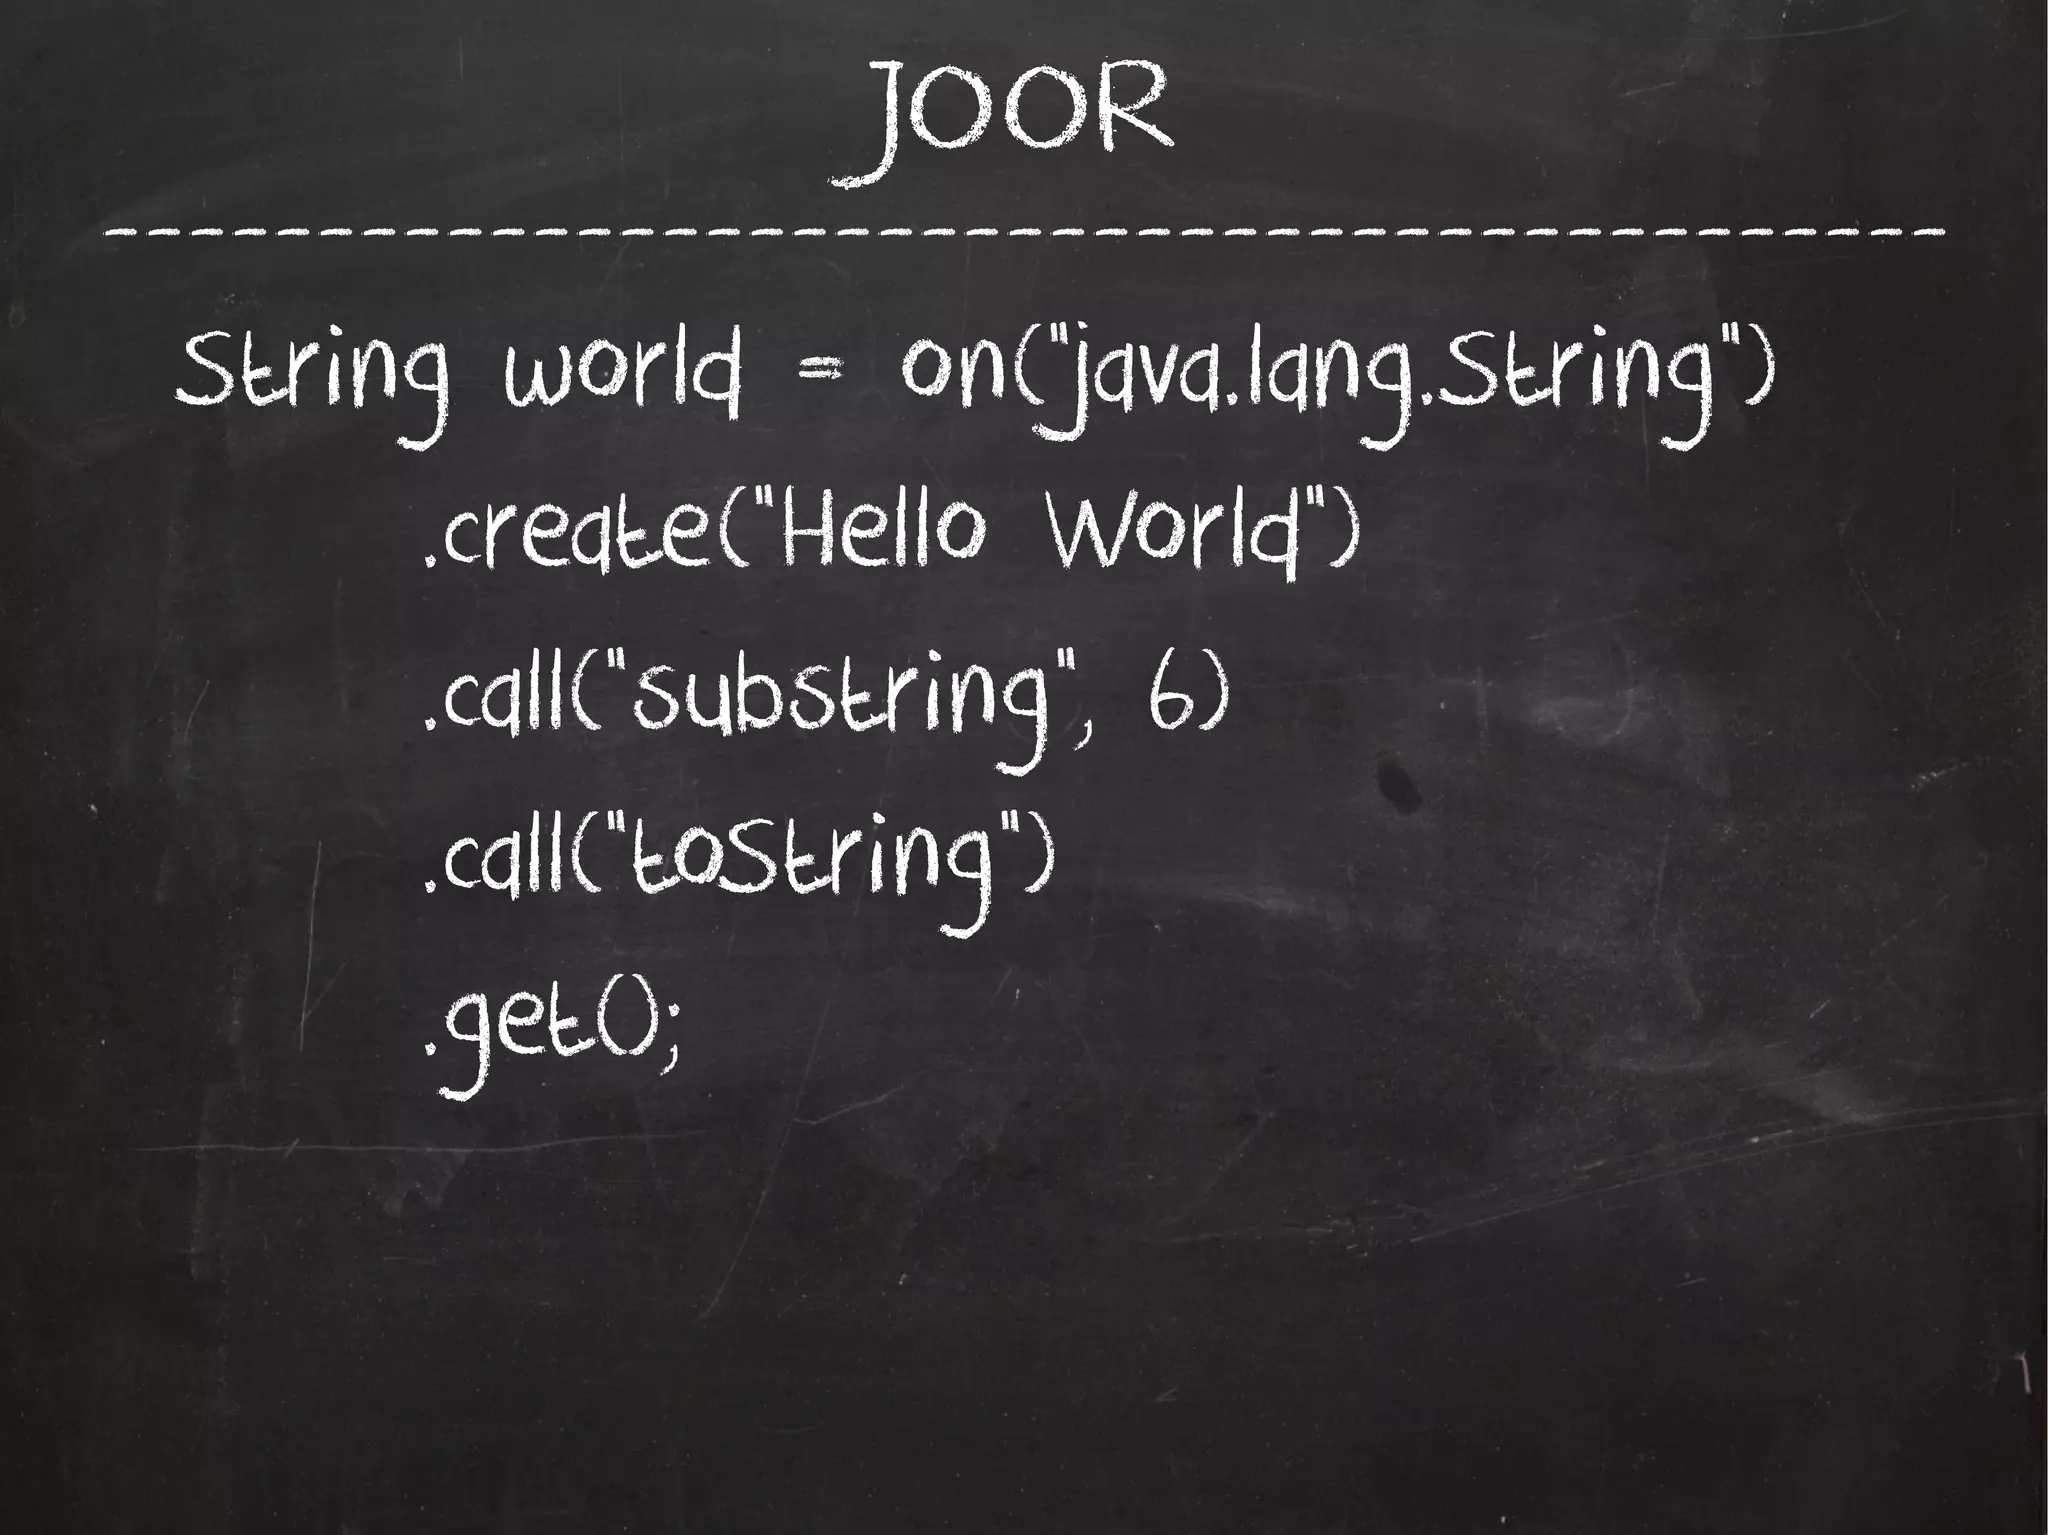 JOOR
String world = on("java.lang.String")
.create("Hello World")
.call("substring", 6)
.call("toString")
.get();